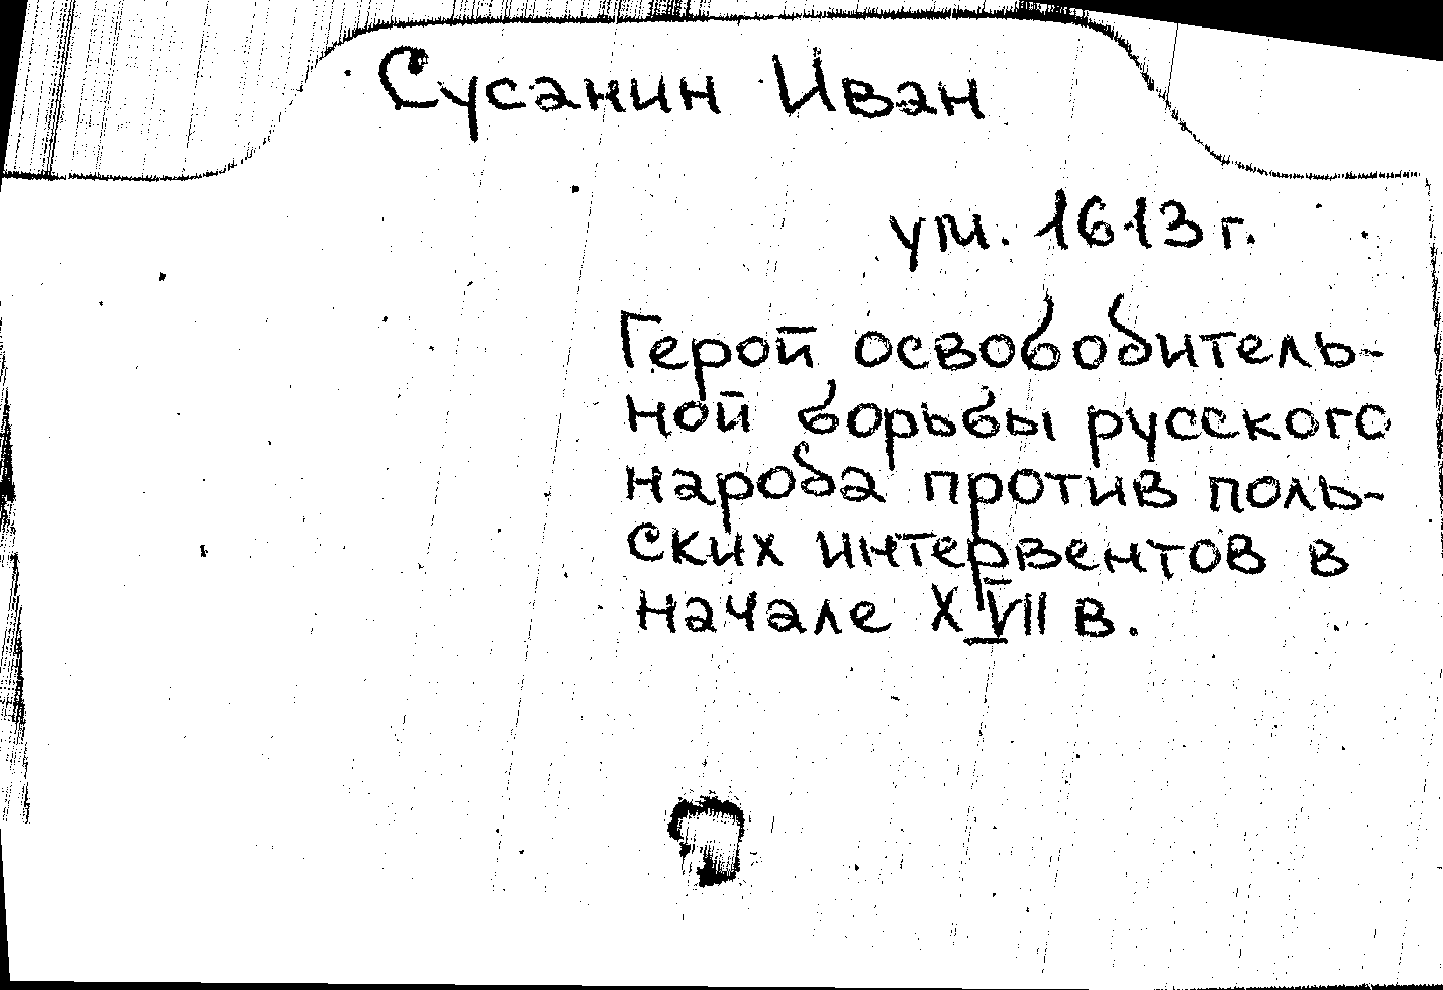 Сусанин Иван
ум. 1613 г.
Герой освободитель-
ной борьбы русского
народа против поль-
ских интервентов в
начале XVII в.